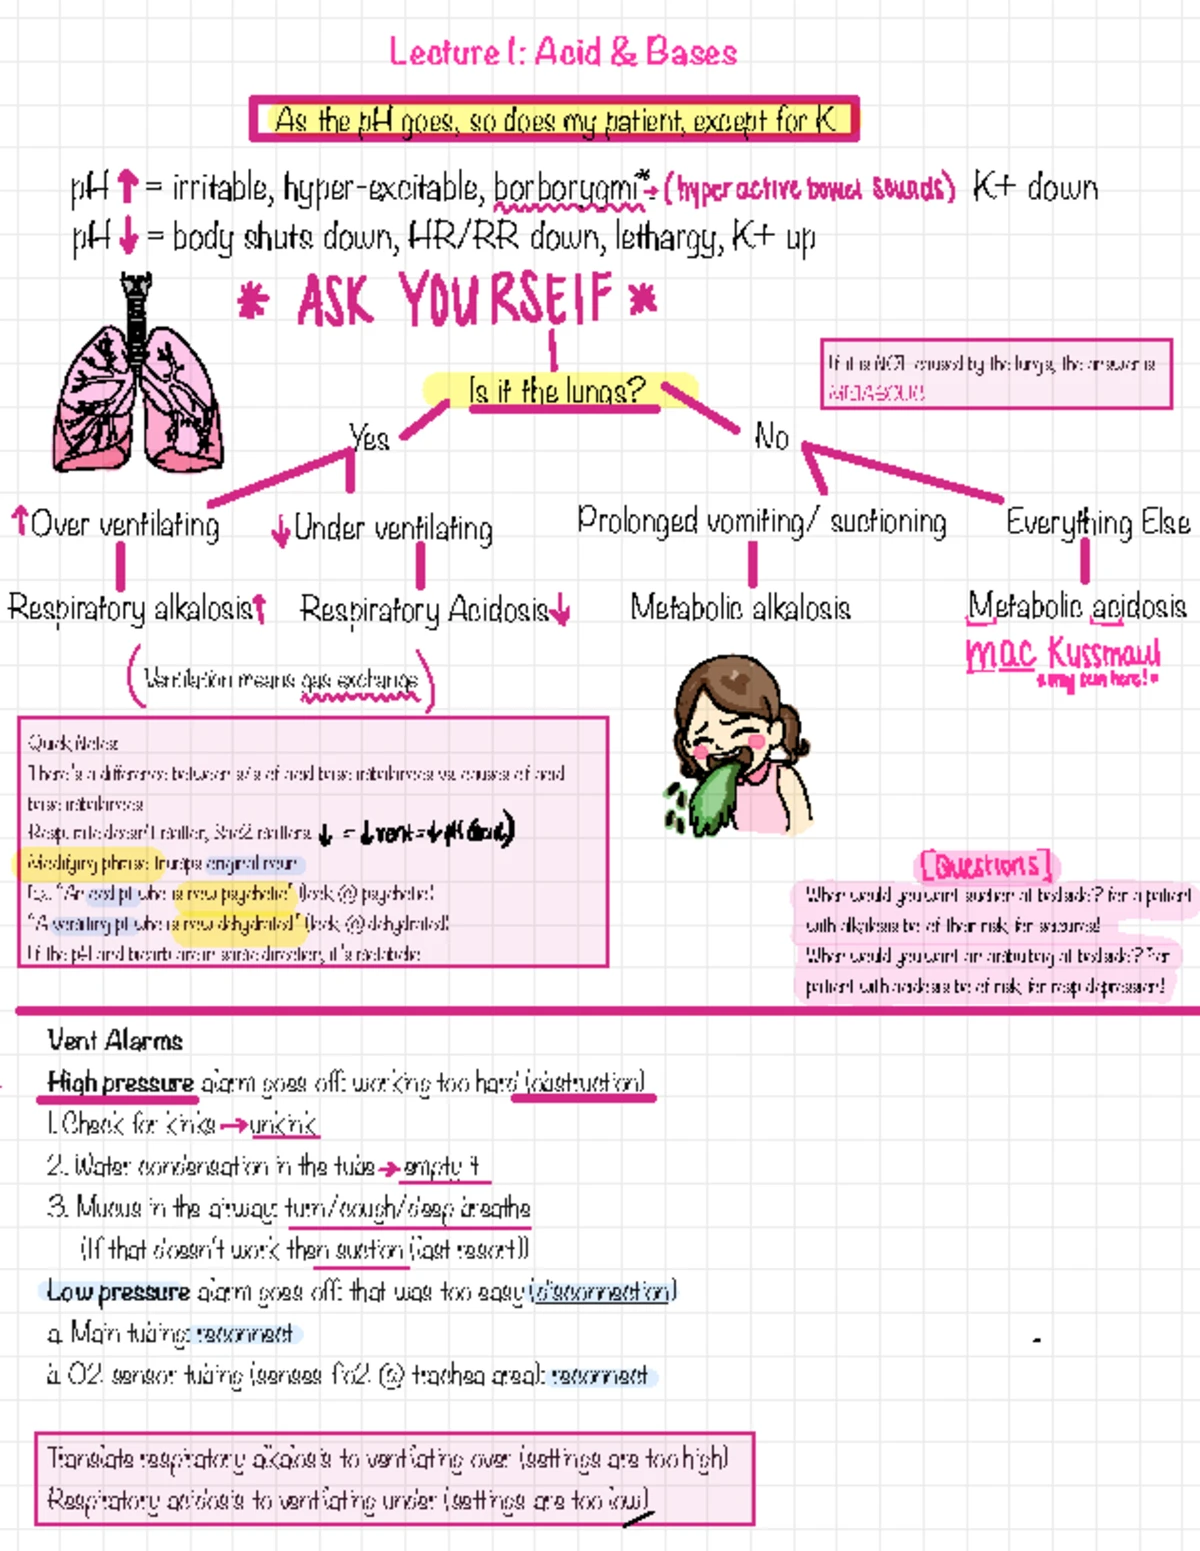 Lecture 1: Acid & Bases
As the pH goes, so does my patient, except for K
pH ↑ = irritable, hyper-excitable, borborygmi*→ (hyperactive bowel sounds) K+ down
pH ↓ = body shuts down, HR/RR down, lethargy, K+ up
* ASK YOURSELF *
If it is NOT caused by the lungs, the answer is
METABOLIC!
Is it the lungs?
Yes
No
↑Over ventilating
↓Under ventilating
Prolonged vomiting/ suctioning
Everything Else
Respiratory alkalosis↑
Respiratory Acidosis↓
Metabolic alkalosis
Metabolic acidosis
mac Kussmaul
(Ventilation means gas exchange)
Quick Notes:
There's a difference between s/s of acid base imbalances vs. causes of acid
base imbalances
Resp. rate doesn't matter, SaO2 matters ↓ = ↓vent=↓pH
Modifying phrase trumps original noun
Ex. "An pt who is now psychotic" (look @ psychotic)
"A vomiting pt who is now dehydrated" (look @ dehydrated)
If the pH and bicarb are in same direction, it's metabolic
[Questions]
When would you want suction at bedside? For a patient
with alkalosis bc of their risk for seizures!
When would you want an ambu bag at bedside? For
patient with acidosis bc of risk for resp depression!
Vent Alarms
High pressure alarm goes off: working too hard (obstruction)
1. Check for kinks → unkink
2. Water condensation in the tube → empty it
3. Mucus in the airway: turn/cough/deep breaths
(If that doesn't work then suction (last resort))
Low pressure alarm goes off: that was too easy (disconnection)
a. Main tubing: reconnect
b. O2 sensor tubing (senses FiO2 @ trachea area): reconnect
Translate respiratory alkalosis to ventilating over (settings are too high)
Respiratory acidosis to ventilating under (settings are too low)